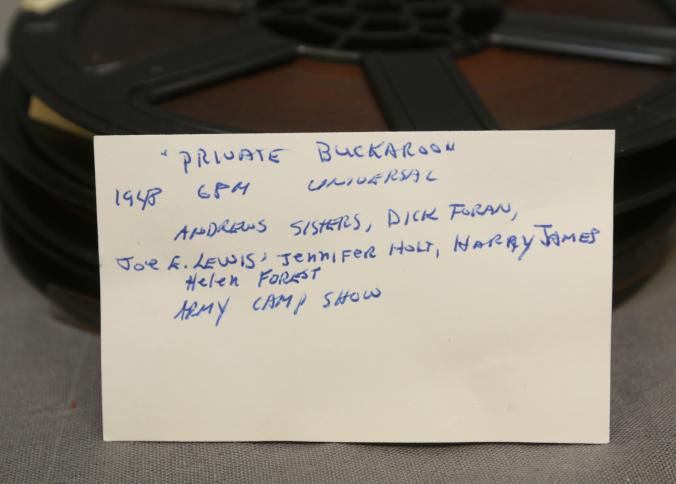 "PRIVATE BUCKAROO"
1948 68M UNIVERSAL
ANDREWS SISTERS, DICK FORAN,
JOE E. LEWIS, JENNIFER HOLT, HARRY JAMES
Helen FOREST
ARMY CAMP SHOW